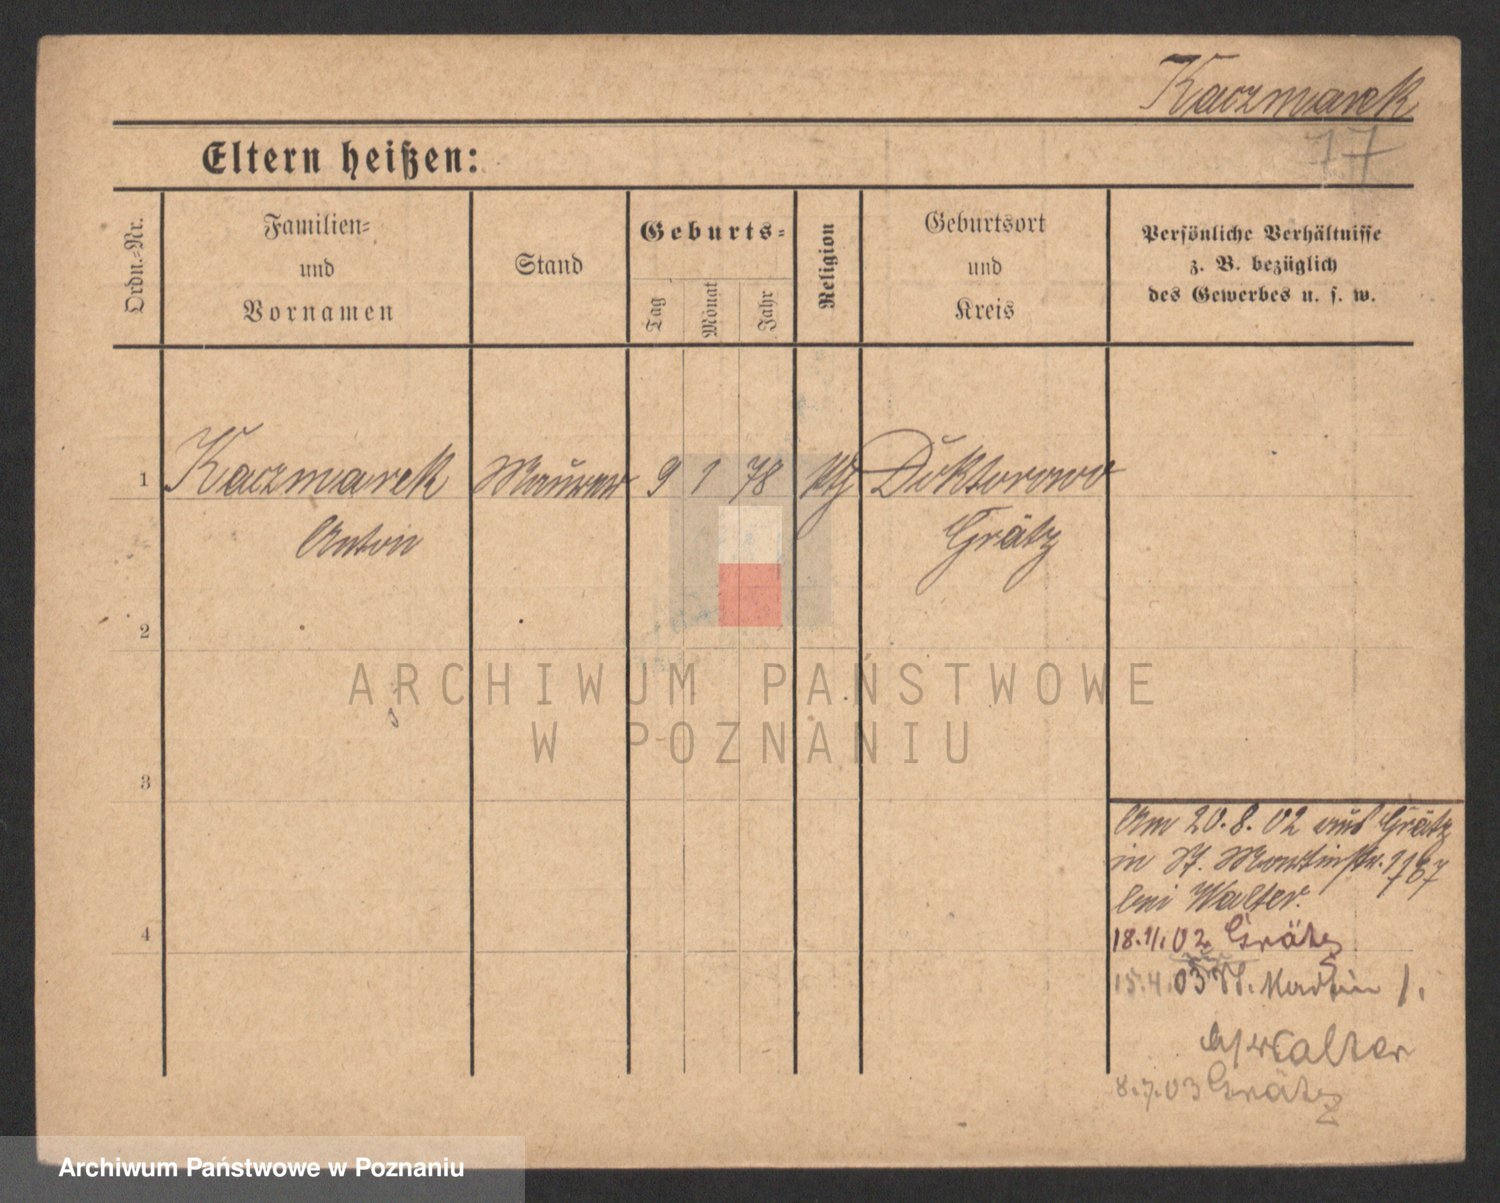 Kaczmarek
17
Eltern heißen:
Ordn.-Nr.
Familien-
und
Vornamen
Stand
Geburts-
Tag
Monat
Jahr
Religion
Geburtsort
und
Kreis
Persönliche Verhältnisse
z. B. bezüglich
des Gewerbes u. s. w.
1 Kaczmarek Maurer 9 1 78 kth Doktorowo
Anton Grätz
2
ARCHIWUM PAŃSTWOWE
W POZNANIU
3
Am 20.8.02 aus Grätz
in St. Martinstr.
bei Walter.
4
18.11.02 Grätz
15.4.03 St. Martin 1.
b/ Walter
8.7.03 Grätz
Archiwum Państwowe w Poznaniu